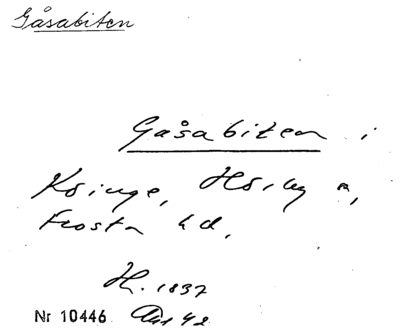 Gåsabiten
Gåsabiten i
Ksinge, Hörby s,
Frosta hd,
H. 1837
Nr 10446